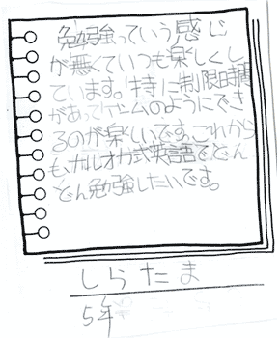 勉強っていう感じ
が無くていつも楽しくし
ています。特に制限時間
があってゲームのようにでき
るのが楽しいです。これから
も、ガルオカ式英語でどん
どん勉強したいです。
しらたま
5年